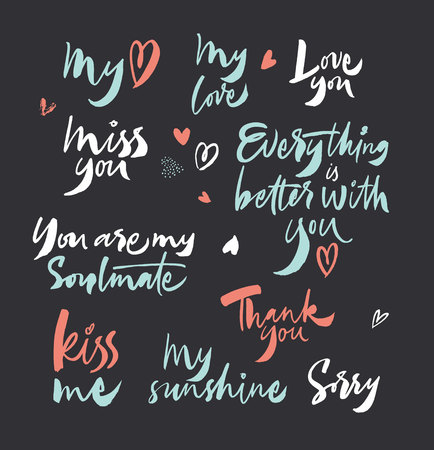 My
My
love
Love
you
miss
you
Everything
is
better with
you
You are my
Soulmate
Thank
you
kiss
me
my
sunshine
Sorry